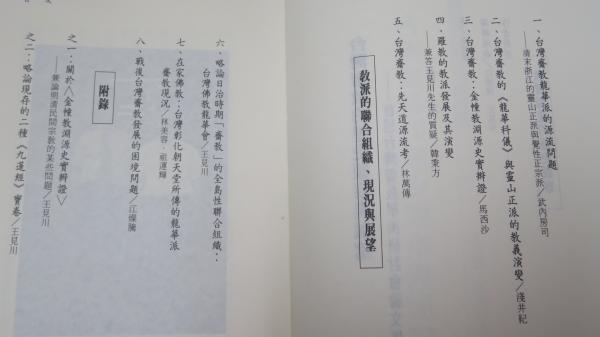 一、台灣齋教龍華派的源流問題
——清末浙江的靈山正派與覺性正宗派／武內房司
二、台灣齋教的《龍華科儀》與靈山正派的教義演變／淺井紀
三、台灣齋教：金幢教淵源史實辨證／馬西沙
四、羅教的教派發展及其演變
——兼答王見川先生的質疑／韓秉方
五、台灣齋教：先天道源流考／林萬傳
教派的聯合組織、現況與展望
六、略論日治時期「齋教」的全島性聯合組織：
台灣佛教龍華會／王見川
七、在家佛教：台灣彰化朝天堂所傳的龍華派
齋教現況／林美容、祖運輝
八、戰後台灣齋教發展的困境問題／江燦騰
附錄
之一：關於〈金幢教淵源史實辨證〉
——兼論明清民間宗教的某些問題／王見川
之二：略論現存的二種《九蓮經》寶卷／王見川